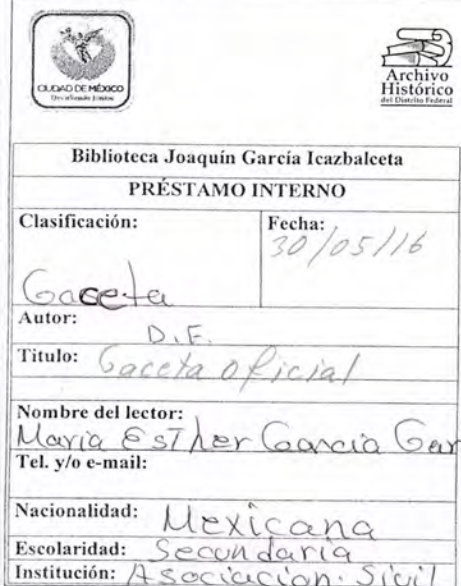 CIUDAD DE MÉXICO
Decidiendo Juntos
Archivo
Histórico
del Distrito Federal
Biblioteca Joaquín García Icazbalceta
PRÉSTAMO INTERNO
Clasificación:
Gaceta
Fecha:
30/05/16
Autor: D.F.
Titulo: Gaceta oficial
Nombre del lector:
Maria EsTher Garcia Gar
Tel. y/o e-mail:
Nacionalidad: Mexicana
Escolaridad: Secundaria
Institución: Asociacion Sivil